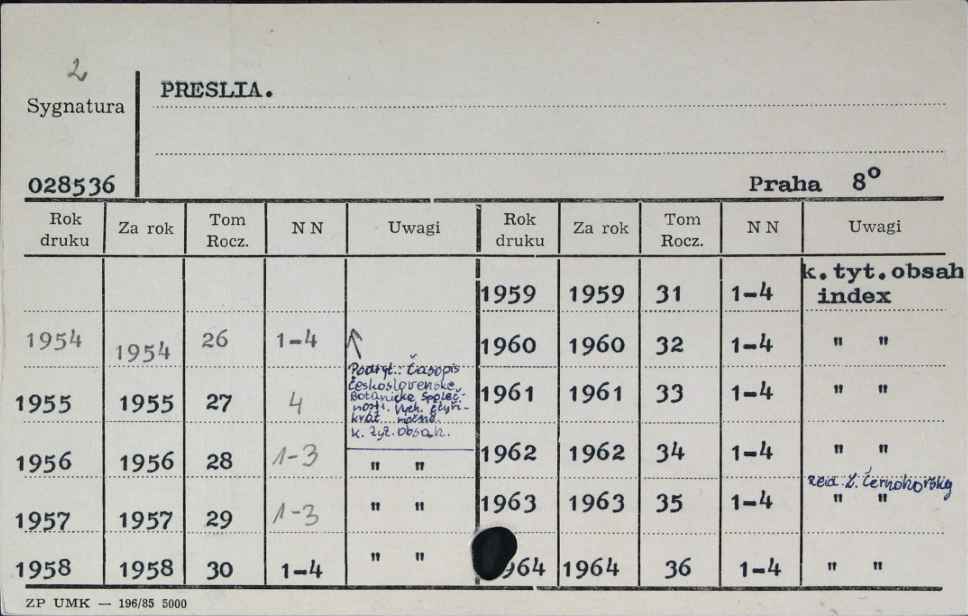 2
PRESLIA.
Sygnatura
028536
Praha 8°
Rok druku Za rok Tom Rocz. N N Uwagi Rok druku Za rok Tom Rocz. N N Uwagi
1959 1959 31 1-4 k. tyt. obsah index
1954 1954 26 1-4
1960 1960 32 1-4 " "
Podtyt.: Časopis
československé
Botanické společ-
nosti. Vych. čtyři-
krát ročně.
k. tyt. obsah.
1955 1955 27 4
1961 1961 33 1-4 " "
1956 1956 28 1-3 " "
1962 1962 34 1-4 " "
Z. Černohorský
1957 1957 29 1-3 " "
1963 1963 35 1-4 " "
1958 1958 30 1-4 " "
964 1964 36 1-4 " "
ZP UMK — 196/85 5000